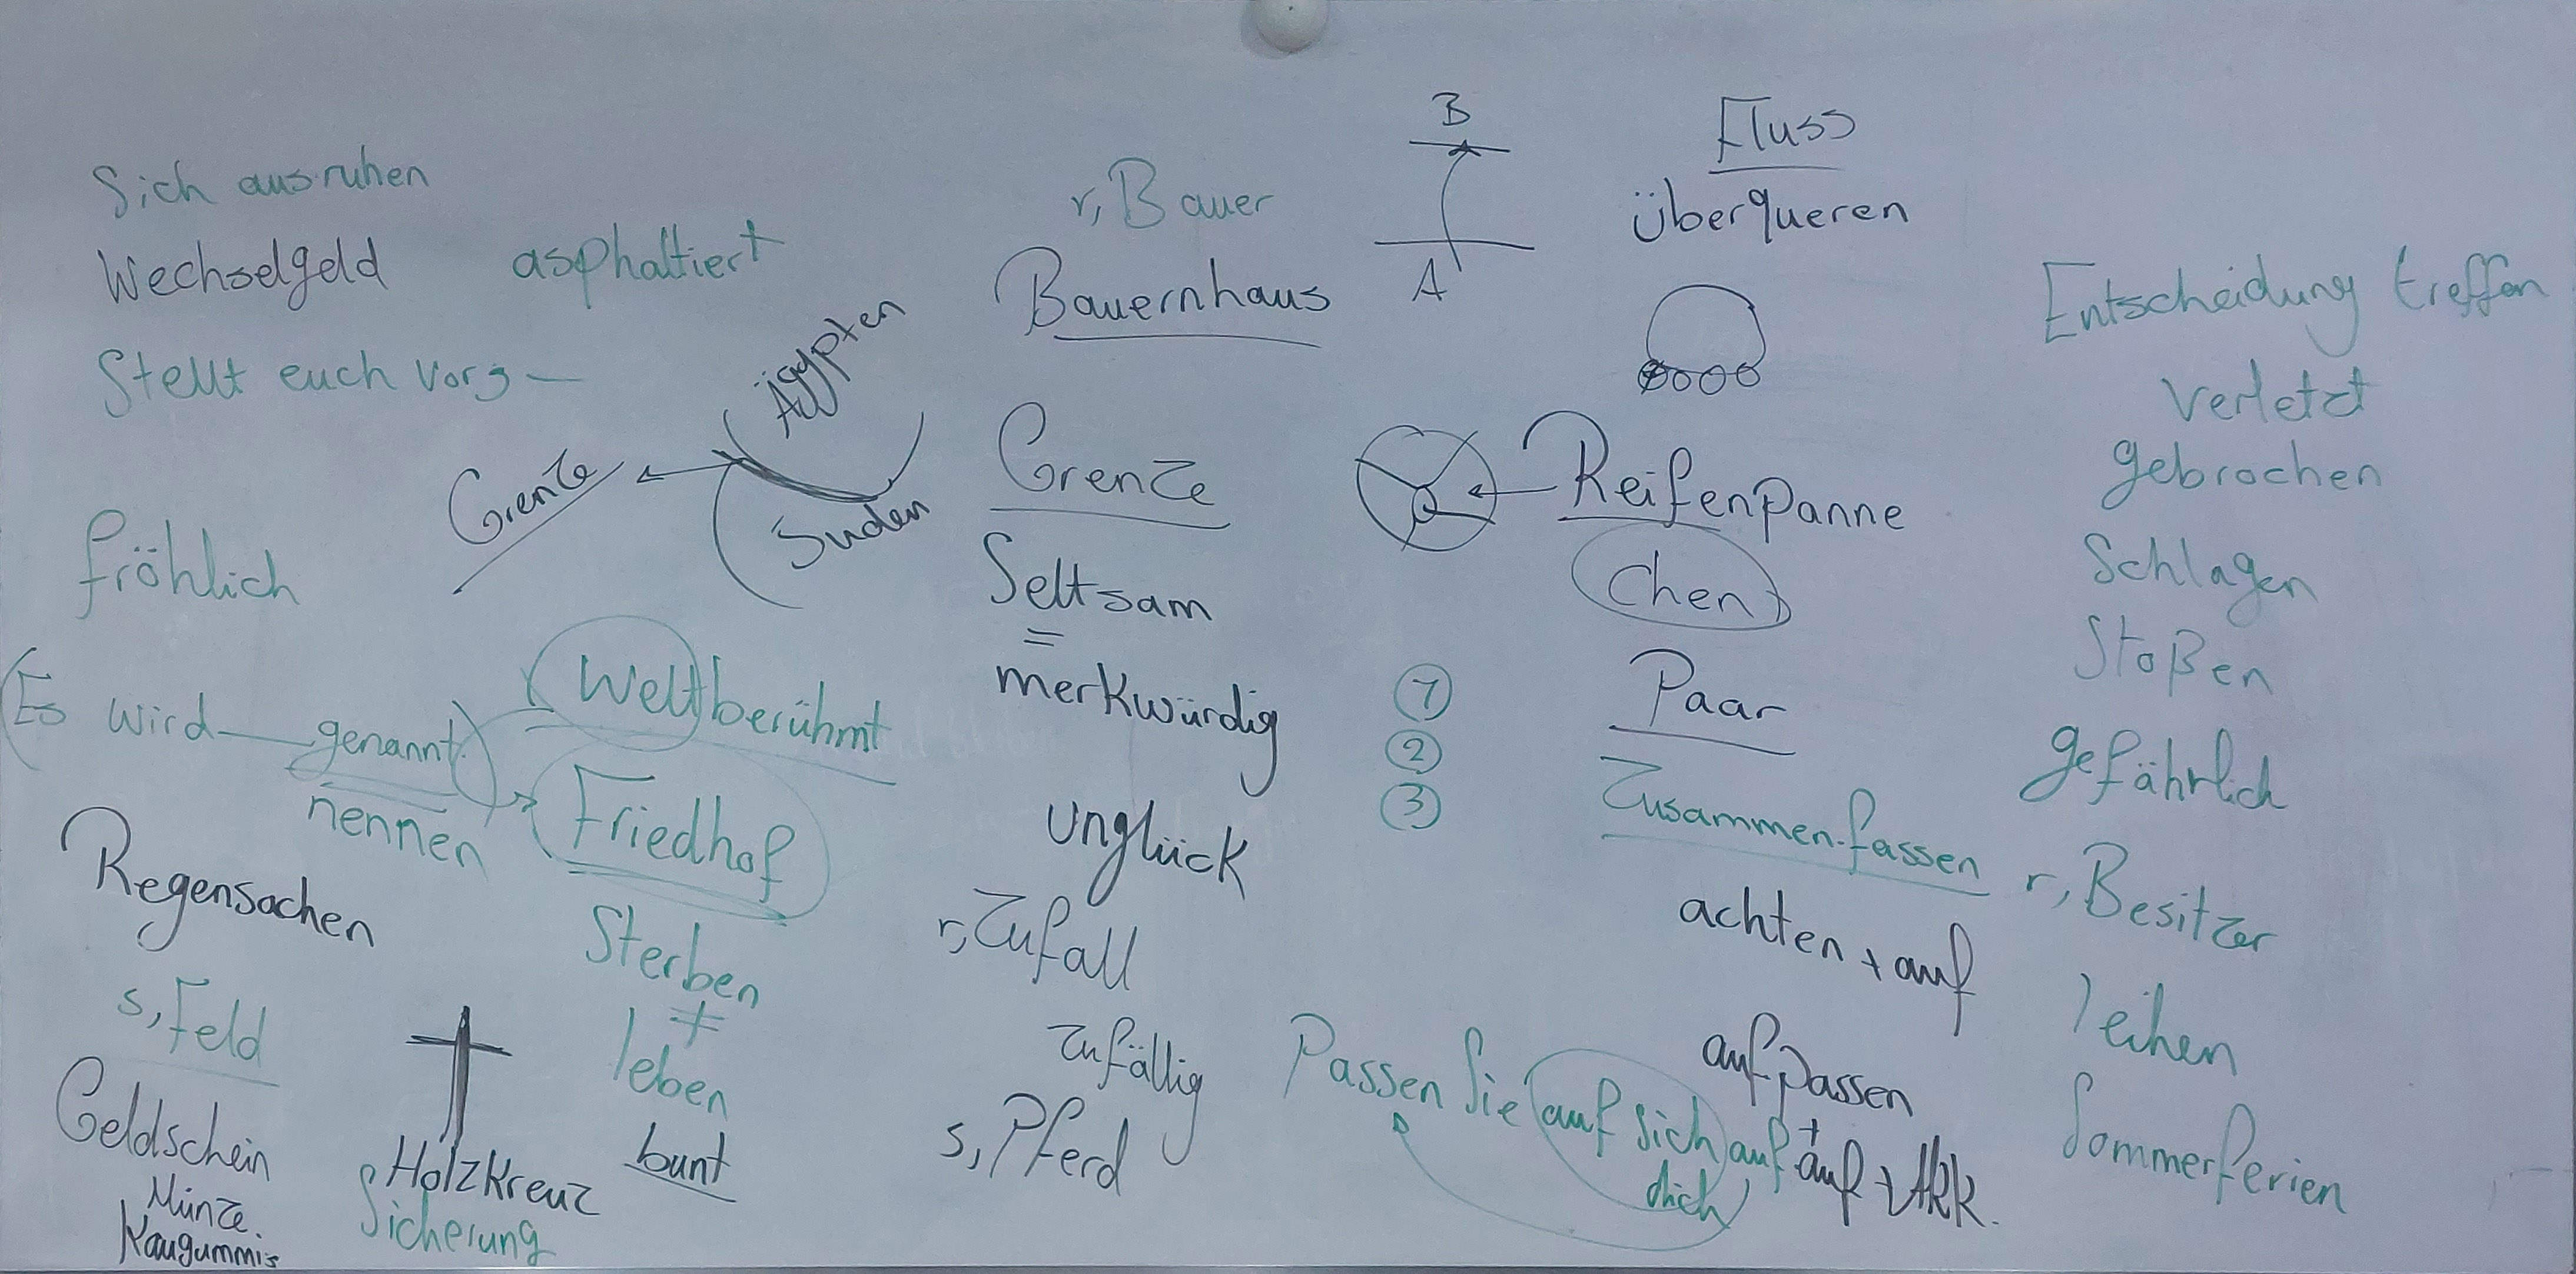 Sich ausruhen
Wechselgeld
asphaltiert
Stellt euch vor
Ägypten
Grenze
Sudan
fröhlich
Es wird genannt
nennen
Weltberühmt
Friedhof
Regensachen
Sterben
≠
leben
bunt
s, Feld
Geldschein
Münze
Kaugummis
Holzkreuz
Sicherung
r, Bauer
Bauernhaus
Grenze
Seltsam
=
merkwürdig
Unglück
r, Zufall
zufällig
s, Pferd
B
A
Fluss
überqueren
Reifenpanne
Chen
1
2
3
Paar
Zusammenfassen
achten + auf
aufpassen
+
auf + Akk.
Passen Sie auf sich auf
dich
Entscheidung treffen
verletzt
gebrochen
Schlagen
Stoßen
gefährlich
r, Besitzer
leihen
Sommerferien